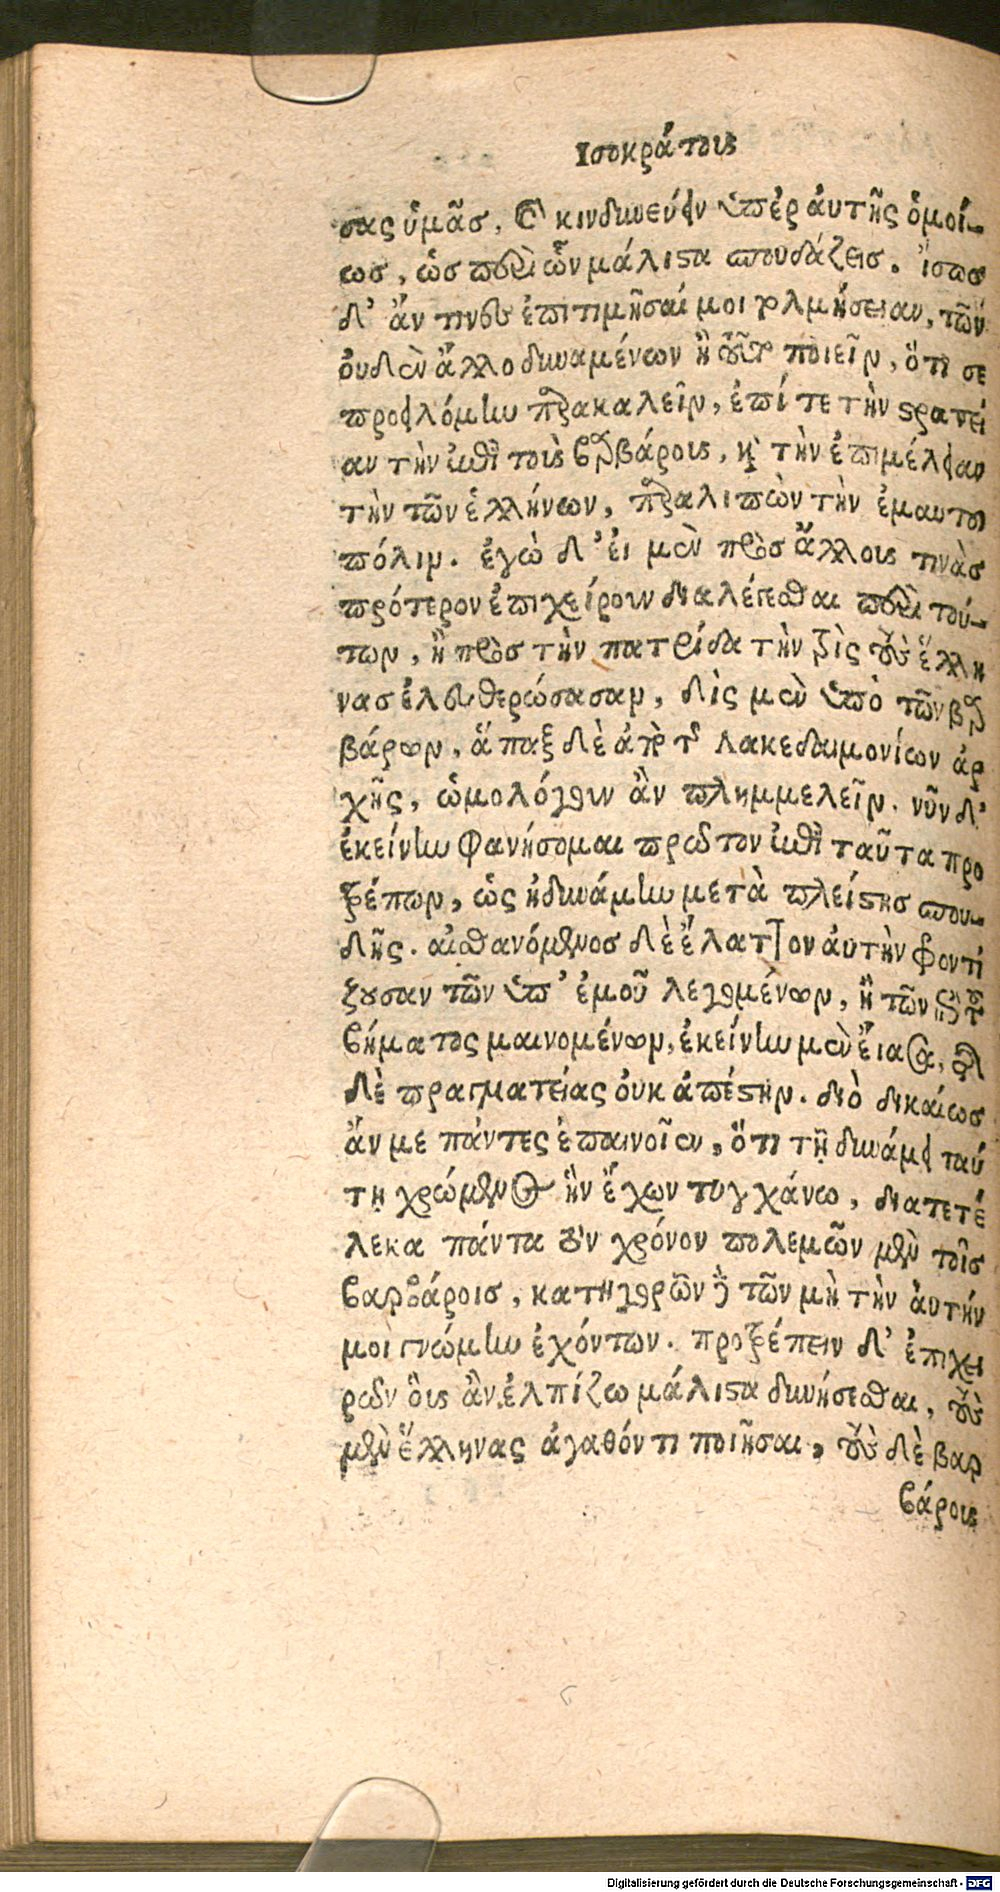 Ισοκράτους
σας ὑμᾶσ, καὶ κινδυνεύειν ὑπὲρ ἀυτῆς ὁμοί-
ωσ, ὡσ περὶ ὧν μάλιστα σπουδάζεισ. ἴσως
δ' ἄν τινες ἐπιτιμῆσαί μοι τολμήσειαν, τῶν
ὀυδὲν ἄλλο δυναμένων ἢ τοῦτο ποιεῖν, ὅτι σε
προειλόμην παρακαλεῖν, ἐπί τε τὴν στρατεί
αν τὴν ἐπὶ τοὺς βαρβάρους, καὶ τὴν ἐπιμέλειαν
τὴν τῶν ἑλλήνων, παραλιπὼν τὴν ἐμαυτοῦ
πόλιν. ἐγὼ δ' ἐι μὲν πρὸσ ἄλλους τινὰσ
πρότερον ἐπιχείρουν διαλέγεσθαι περὶ τού-
των, ἢ πρὸσ τὴν πατρίδα τὴν τρὶς τοὺς ἕλλη
νασ ἐλευθερώσασαν, δὶς μὲν ὑπὸ τῶν βαρ
βάρων, ἅπαξ δὲ ἀπὸ τῆς λακεδαιμονίων ἀρ
χῆς, ὡμολόγουν ἂν πλημμελεῖν. νῦν δ'
ἐκείνην φανήσομαι πρῶτον ἐπὶ ταῦτα προ
τρέπων, ὡς ἠδυνάμην μετὰ πλείστησ σπου-
δῆς. αἰσθανόμενοσ δὲ ἔλαττον ἀυτὴν φροντί
ζουσαν τῶν ὑπ' ἐμοῦ λεγομένων, ἢ τῶν ἐπὶ τοῦ
βήματος μαινομένων, ἐκείνην μὲν ἔιασα, τῆς
δὲ πραγματείας ὀυκ ἀπέστην. διὸ δικαίως
ἄν με πάντες ἐπαινοῖεν, ὅτι τῇ δυνάμει ταύ
τῃ χρώμενος ἣν ἔχων τυγχάνω, διατετέ
λεκα πάντα τὸν χρόνον πολεμῶν μὲν τοῖσ
βαρβάροισ, κατηγορῶν δὲ τῶν μὴ τὴν ἀυτήν
μοι γνώμην ἐχόντων. προτρέπειν δ' ἐπιχει
ρῶν ὃυς ἂν ἐλπίζω μάλιστα δυνήσεσθαι, τοὺς
μὲν ἕλληνας ἀγαθόν τι ποιῆσαι, τοὺς δὲ βαρ
βάρους
Digitalisierung gefördert durch die Deutsche Forschungsgemeinschaft - DFG